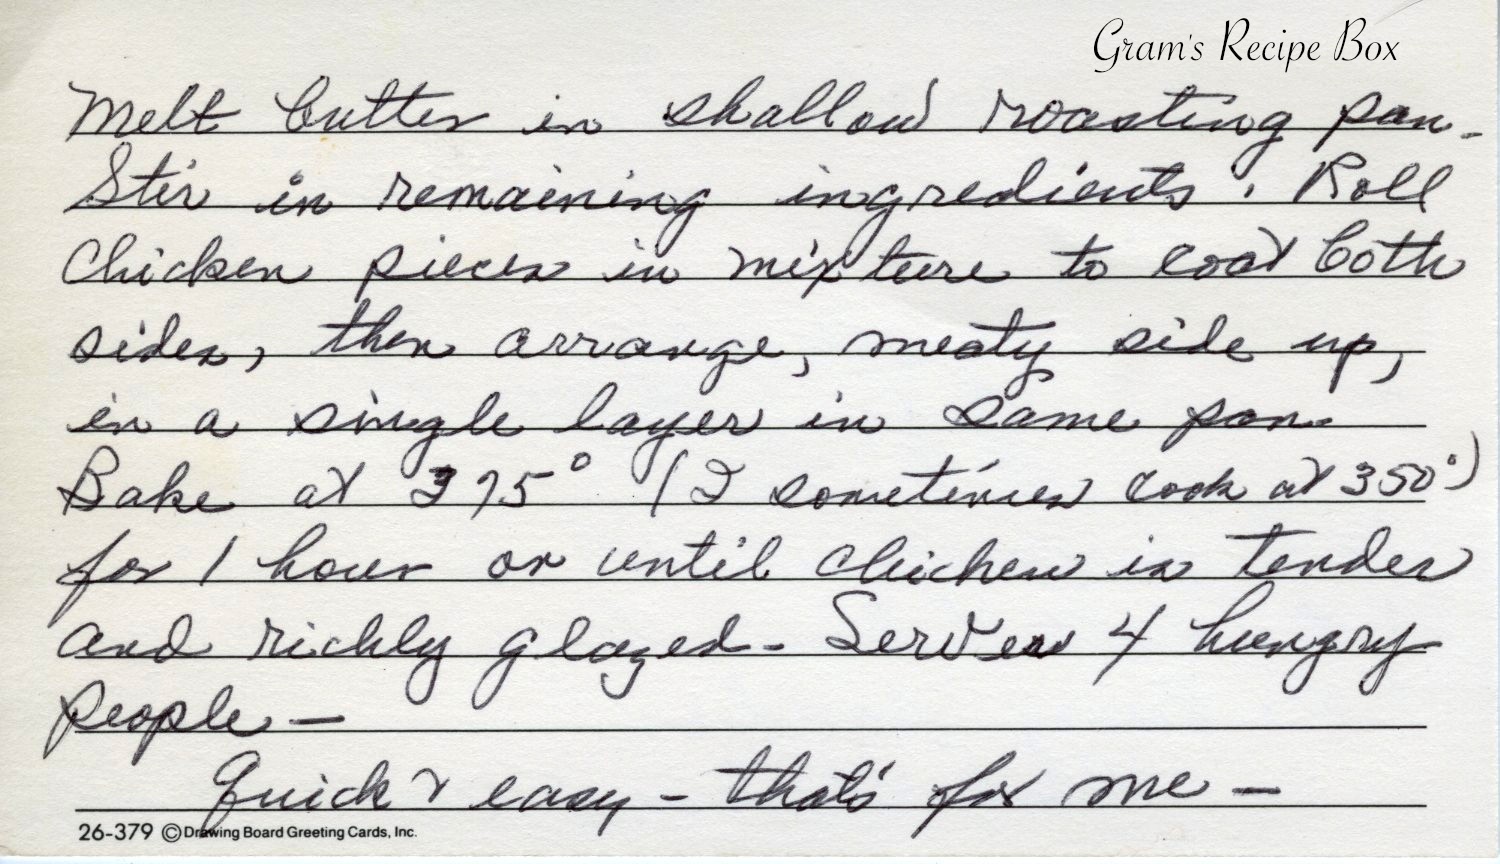 Gram's Recipe Box
Melt butter in shallow roasting pan -
Stir in remaining ingredients. Roll
chicken pieces in mixture to coat both
sides, then arrange, meaty side up,
in a single layer in same pan.
Bake at 375° (I sometimes cook at 350°)
for 1 hour or until chicken is tender
and richly glazed - Serves 4 hungry
people -
Quick & easy - that's for me -
26-379 © Drawing Board Greeting Cards, Inc.